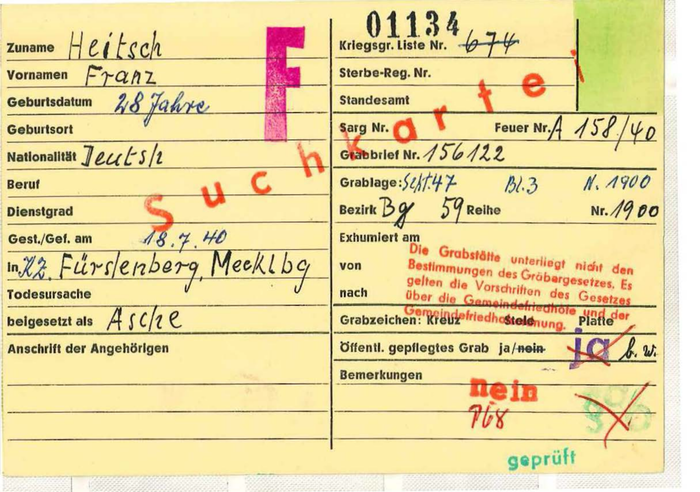 Zuname Heitsch
Vornamen Franz
Geburtsdatum 28 Jahre
Geburtsort
Nationalität Deutsh
Beruf
Dienstgrad
Gest./Gef. am 18.7.40
In KZ. Fürstenberg, Mecklbg
Todesursache
beigesetzt als Asche
Anschrift der Angehörigen
F
Suchkartei
01134
Kriegsgr. Liste Nr. 674
Sterbe-Reg. Nr.
Standesamt
Sarg Nr. Feuer Nr. A 158/40
Grabbrief Nr. 156122
Grablage: Sept. 47 Bl. 3 N. 1900
Bezirk Bg 59 Reihe Nr. 1900
Exhumiert am
von
nach
Die Grabstätte unterliegt nicht den
Bestimmungen des Gräbergesetzes. Es
gelten die Vorschriften des Gesetzes
über die Gemeindefriedhöfe und der
Gemeindefriedhofsordnung.
Grabzeichen: Kreuz Platte
Öffentl. gepflegtes Grab ja/nein ja b. w.
Bemerkungen
nein
geprüft